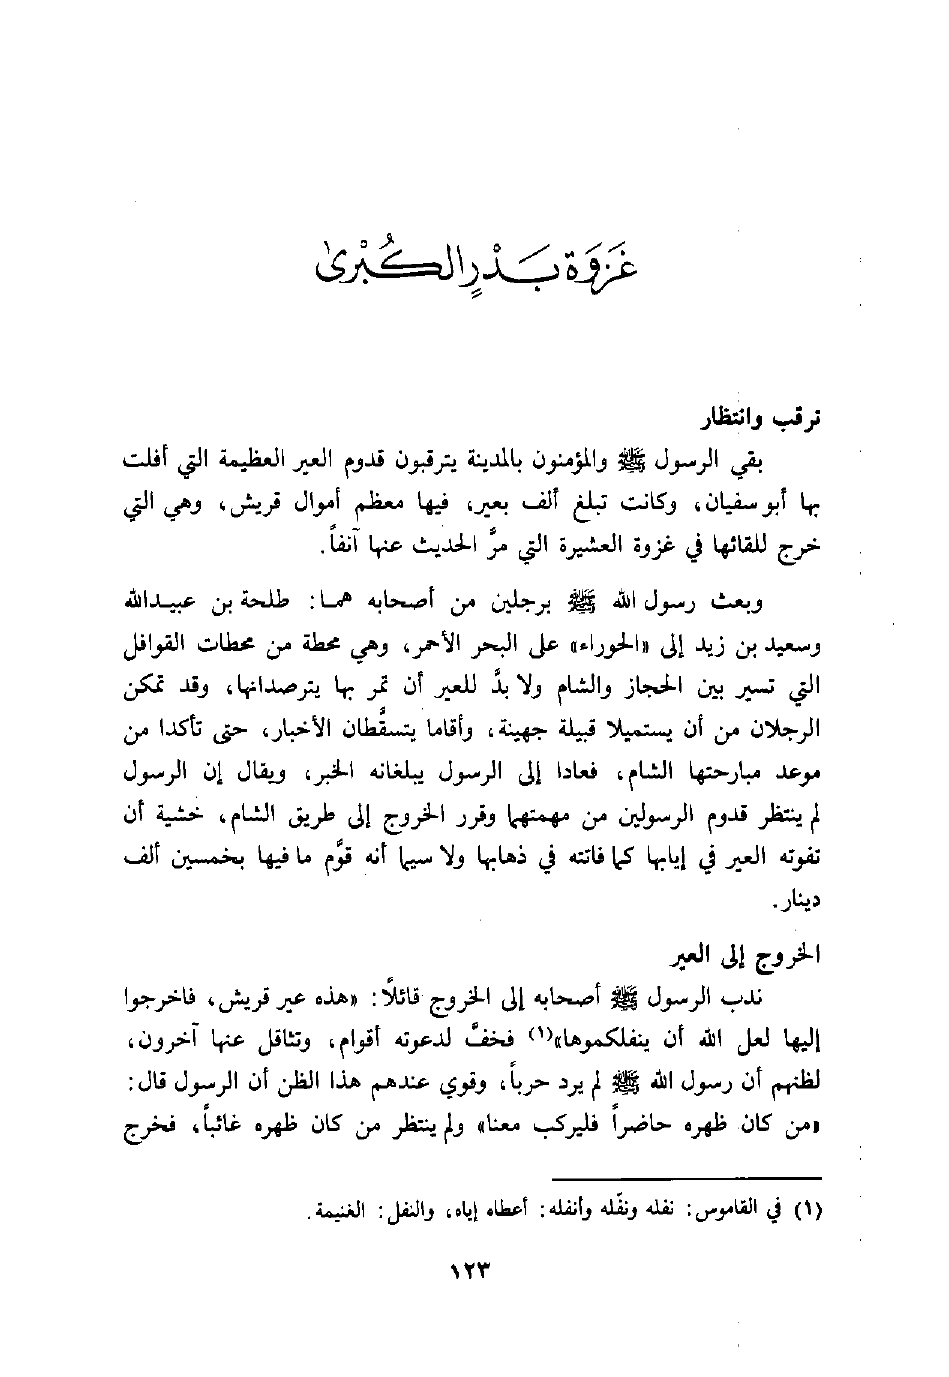 غَزْوَة بَدْرٍ الكُبْرىٰ
ترقب وانتظار
بقي الرسول ﷺ والمؤمنون بالمدينة يترقبون قدوم العير العظيمة التي أفلت
بها أبو سفيان، وكانت تبلغ ألف بعير، فيها معظم أموال قريش، وهي التي
خرج للقائها في غزوة العشيرة التي مرَّ الحديث عنها آنفاً.
وبعث رسول الله ﷺ برجلين من أصحابه هما: طلحة بن عبيدالله
وسعيد بن زيد إلى «الحوراء» على البحر الأحمر، وهي محطة من محطات القوافل
التي تسير بين الحجاز والشام ولا بدَّ للعير أن تمر بها يترصدانها، وقد تمكن
الرجلان من أن يستميلا قبيلة جهينة، وأقاما يتسقَّطان الأخبار، حتى تأكدا من
موعد مبارحتها الشام، فعادا إلى الرسول يبلغانه الخبر، ويقال إن الرسول
لم ينتظر قدوم الرسولين من مهمتهما وقرر الخروج إلى طريق الشام، خشية أن
تفوته العير في إيابها كما فاتته في ذهابها ولا سيما أنه قوَّم ما فيها بخمسين ألف
دينار.
الخروج إلى العير
ندب الرسول ﷺ أصحابه إلى الخروج قائلاً: «هذه عير قريش، فاخرجوا
إليها لعل الله أن ينفلكموها»(١) فخفَّ لدعوته أقوام، وتثاقل عنها آخرون،
لظنهم أن رسول الله ﷺ لم يرد حرباً، وقوي عندهم هذا الظن أن الرسول قال:
«من كان ظهره حاضراً فليركب معنا» ولم ينتظر من كان ظهره غائباً، فخرج
(١) في القاموس: نفله ونفّله وأنفله: أعطاه إياه، والنفل: الغنيمة.
١٢٣